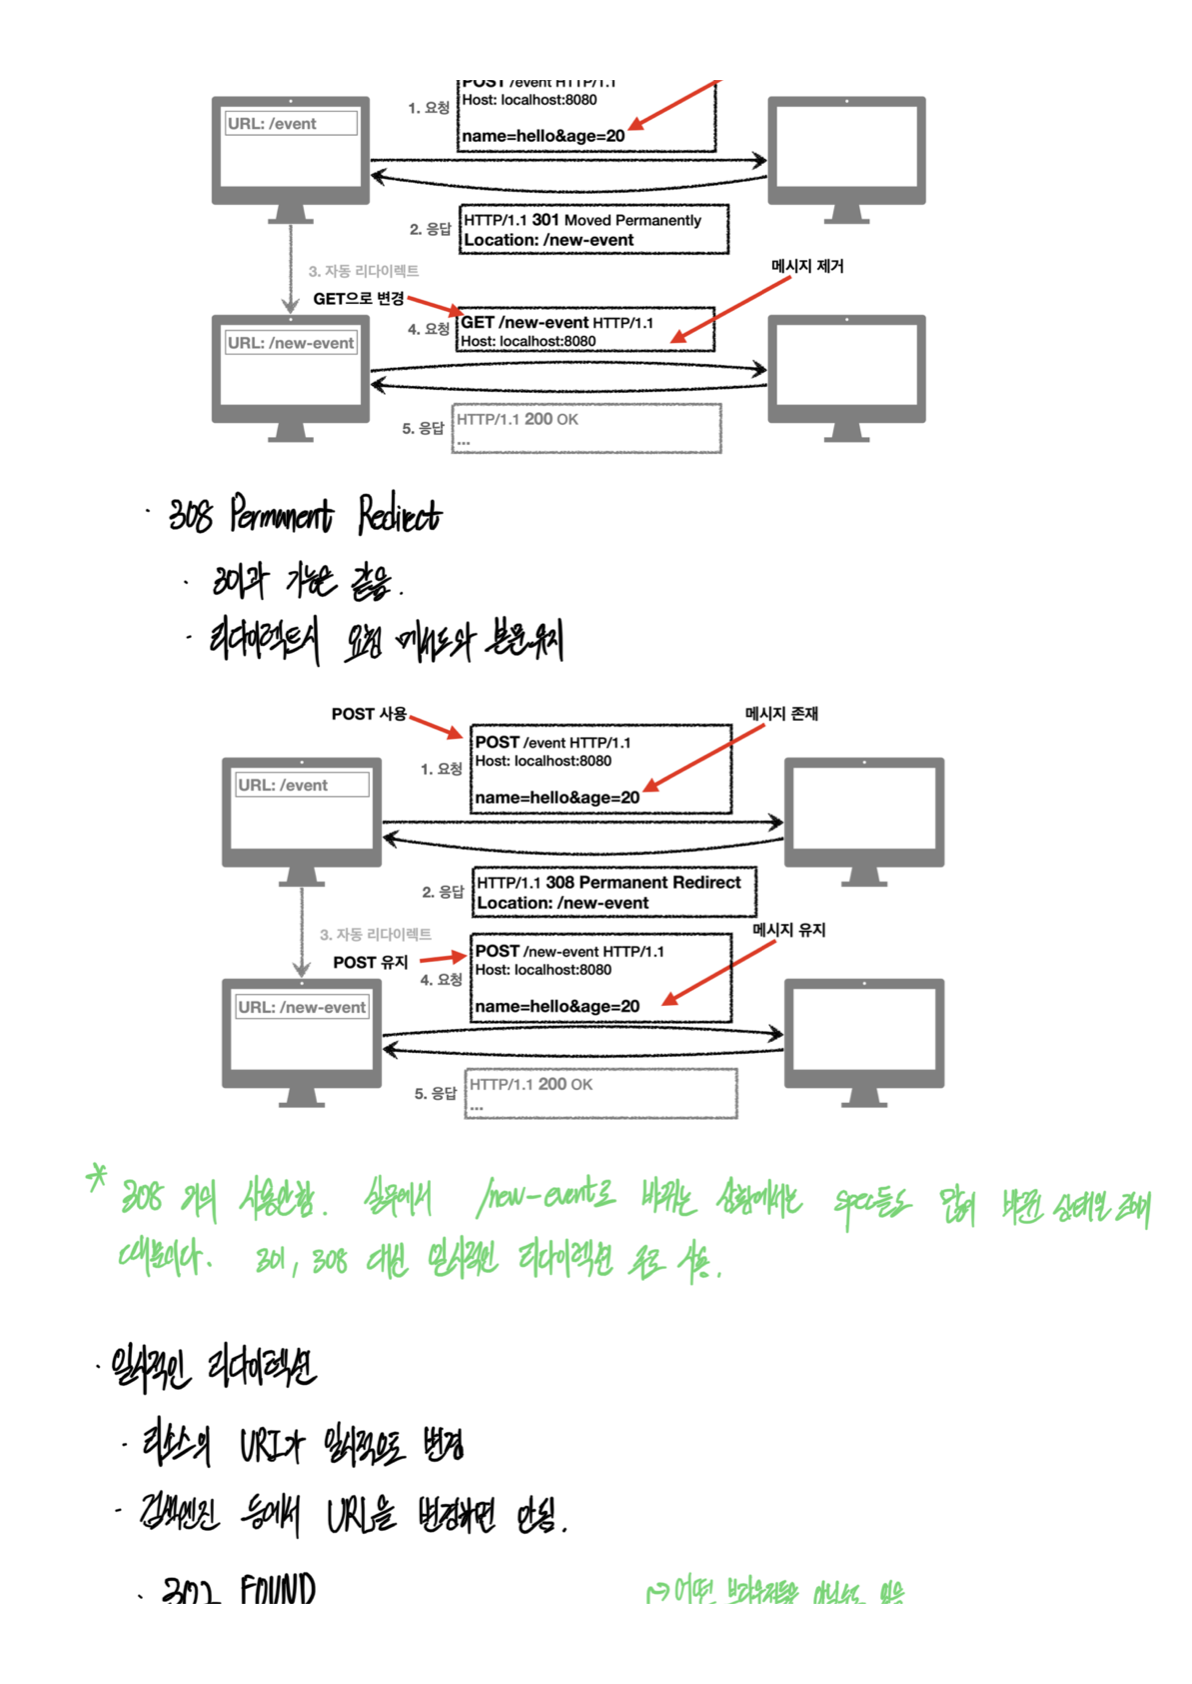 POST /event HTTP/1.1
1. 요청
Host: localhost:8080
URL: /event
name=hello&age=20
2. 응답
HTTP/1.1 301 Moved Permanently
Location: /new-event
3. 자동 리다이렉트
메시지 제거
GET으로 변경
4. 요청
GET /new-event HTTP/1.1
Host: localhost:8080
URL: /new-event
5. 응답
HTTP/1.1 200 OK
...
· 308 Permanent Redirect
· 301과 기능은 같음.
· 리다이렉트시 요청 메서드와 본문유지
POST 사용
메시지 존재
POST /event HTTP/1.1
1. 요청
Host: localhost:8080
URL: /event
name=hello&age=20
2. 응답
HTTP/1.1 308 Permanent Redirect
Location: /new-event
3. 자동 리다이렉트
메시지 유지
POST 유지
4. 요청
POST /new-event HTTP/1.1
Host: localhost:8080
name=hello&age=20
URL: /new-event
5. 응답
HTTP/1.1 200 OK
...
* 308 거의 사용안함. 실무에서 /new-event로 바뀌는 상황에서는 spec들도 많이 바뀐 상태일
때문이다. 301, 308 대신 일시적인 리다이렉션 주로 사용.
· 일시적인 리다이렉션
· 리소스의 URI가 일시적으로 변경
· 검색엔진 등에서 URL을 변경하면 안됨.
· 302 FOUND
어떤 브라우저들은 있음